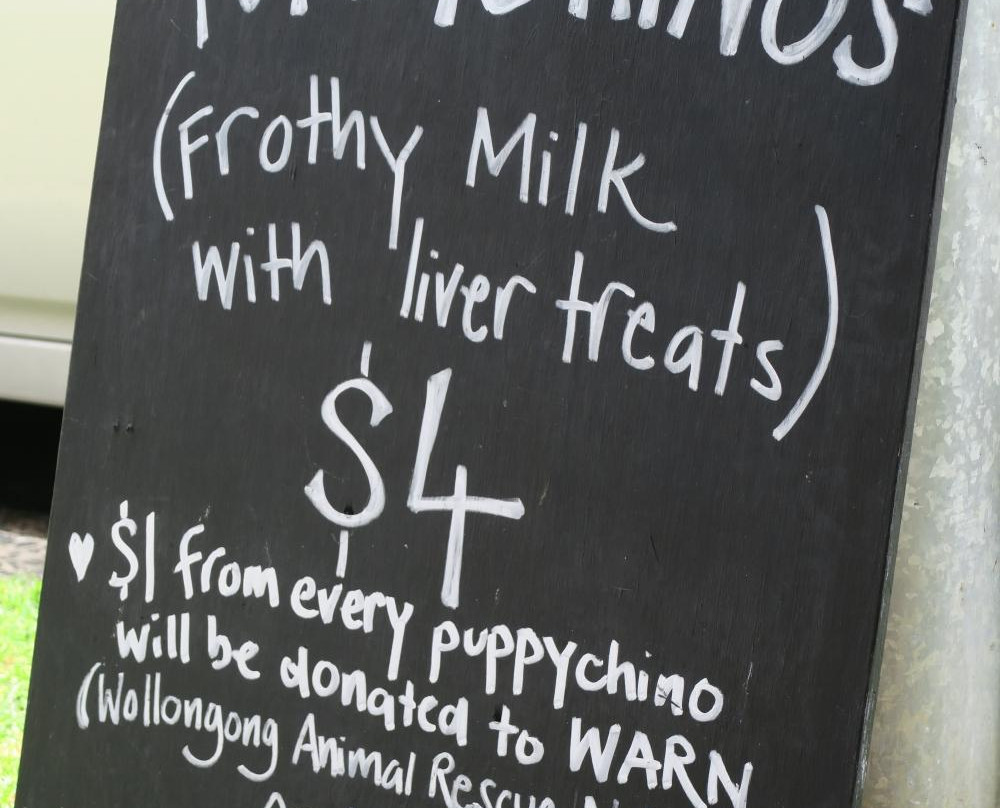 (Frothy Milk
with liver treats)
$4
♥ $1 from every puppychino
will be donated to WARN
(Wollongong Animal Rescue